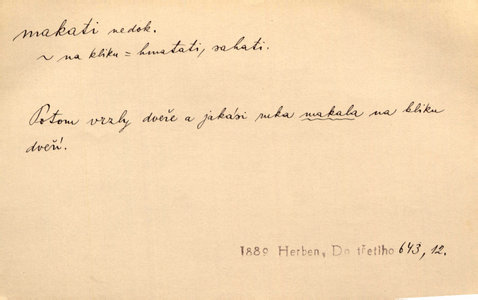 makati nedok.
~ na kliku = hmatati, sahati.
Potom vrzly dveře a jakási ruka makala na kliku
dveří.
1889 Herben, Do třetího 643, 12.